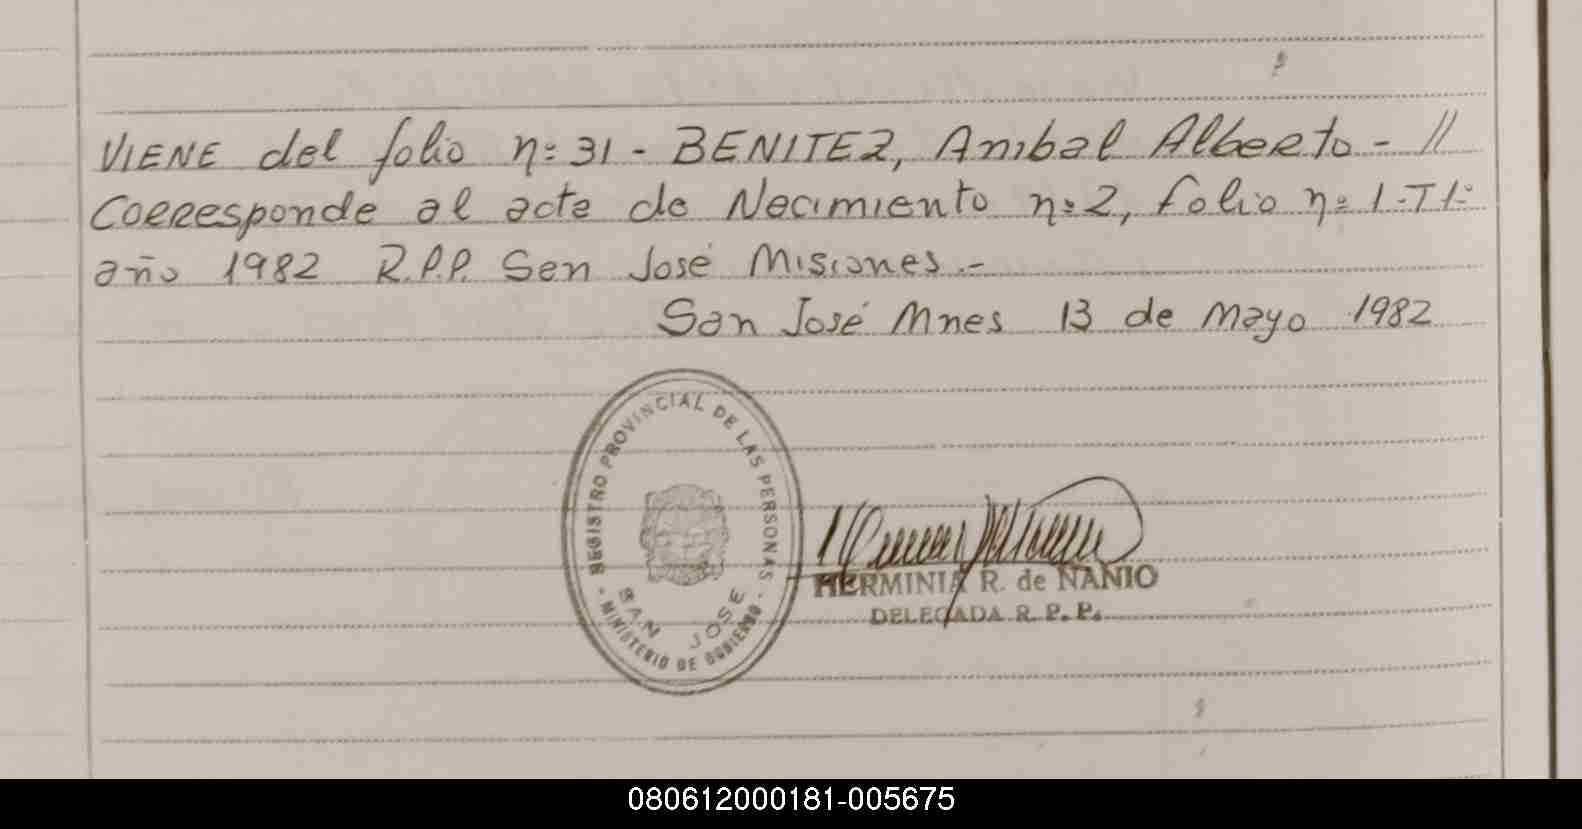 VIENE del folio nº 31 - BENITEZ, Anibal Alberto - //
Corresponde al acta de Nacimiento nº 2, folio nº 1-T1º
año 1982 R.P.P. San José Misiones.-
San José Mnes 13 de Mayo 1982
REGISTRO PROVINCIAL DE LAS PERSONAS
SAN JOSE
- MINISTERIO DE GOBIERNO -
HERMINIA R. de NANIO
DELEGADA R. P. P.
080612000181-005675